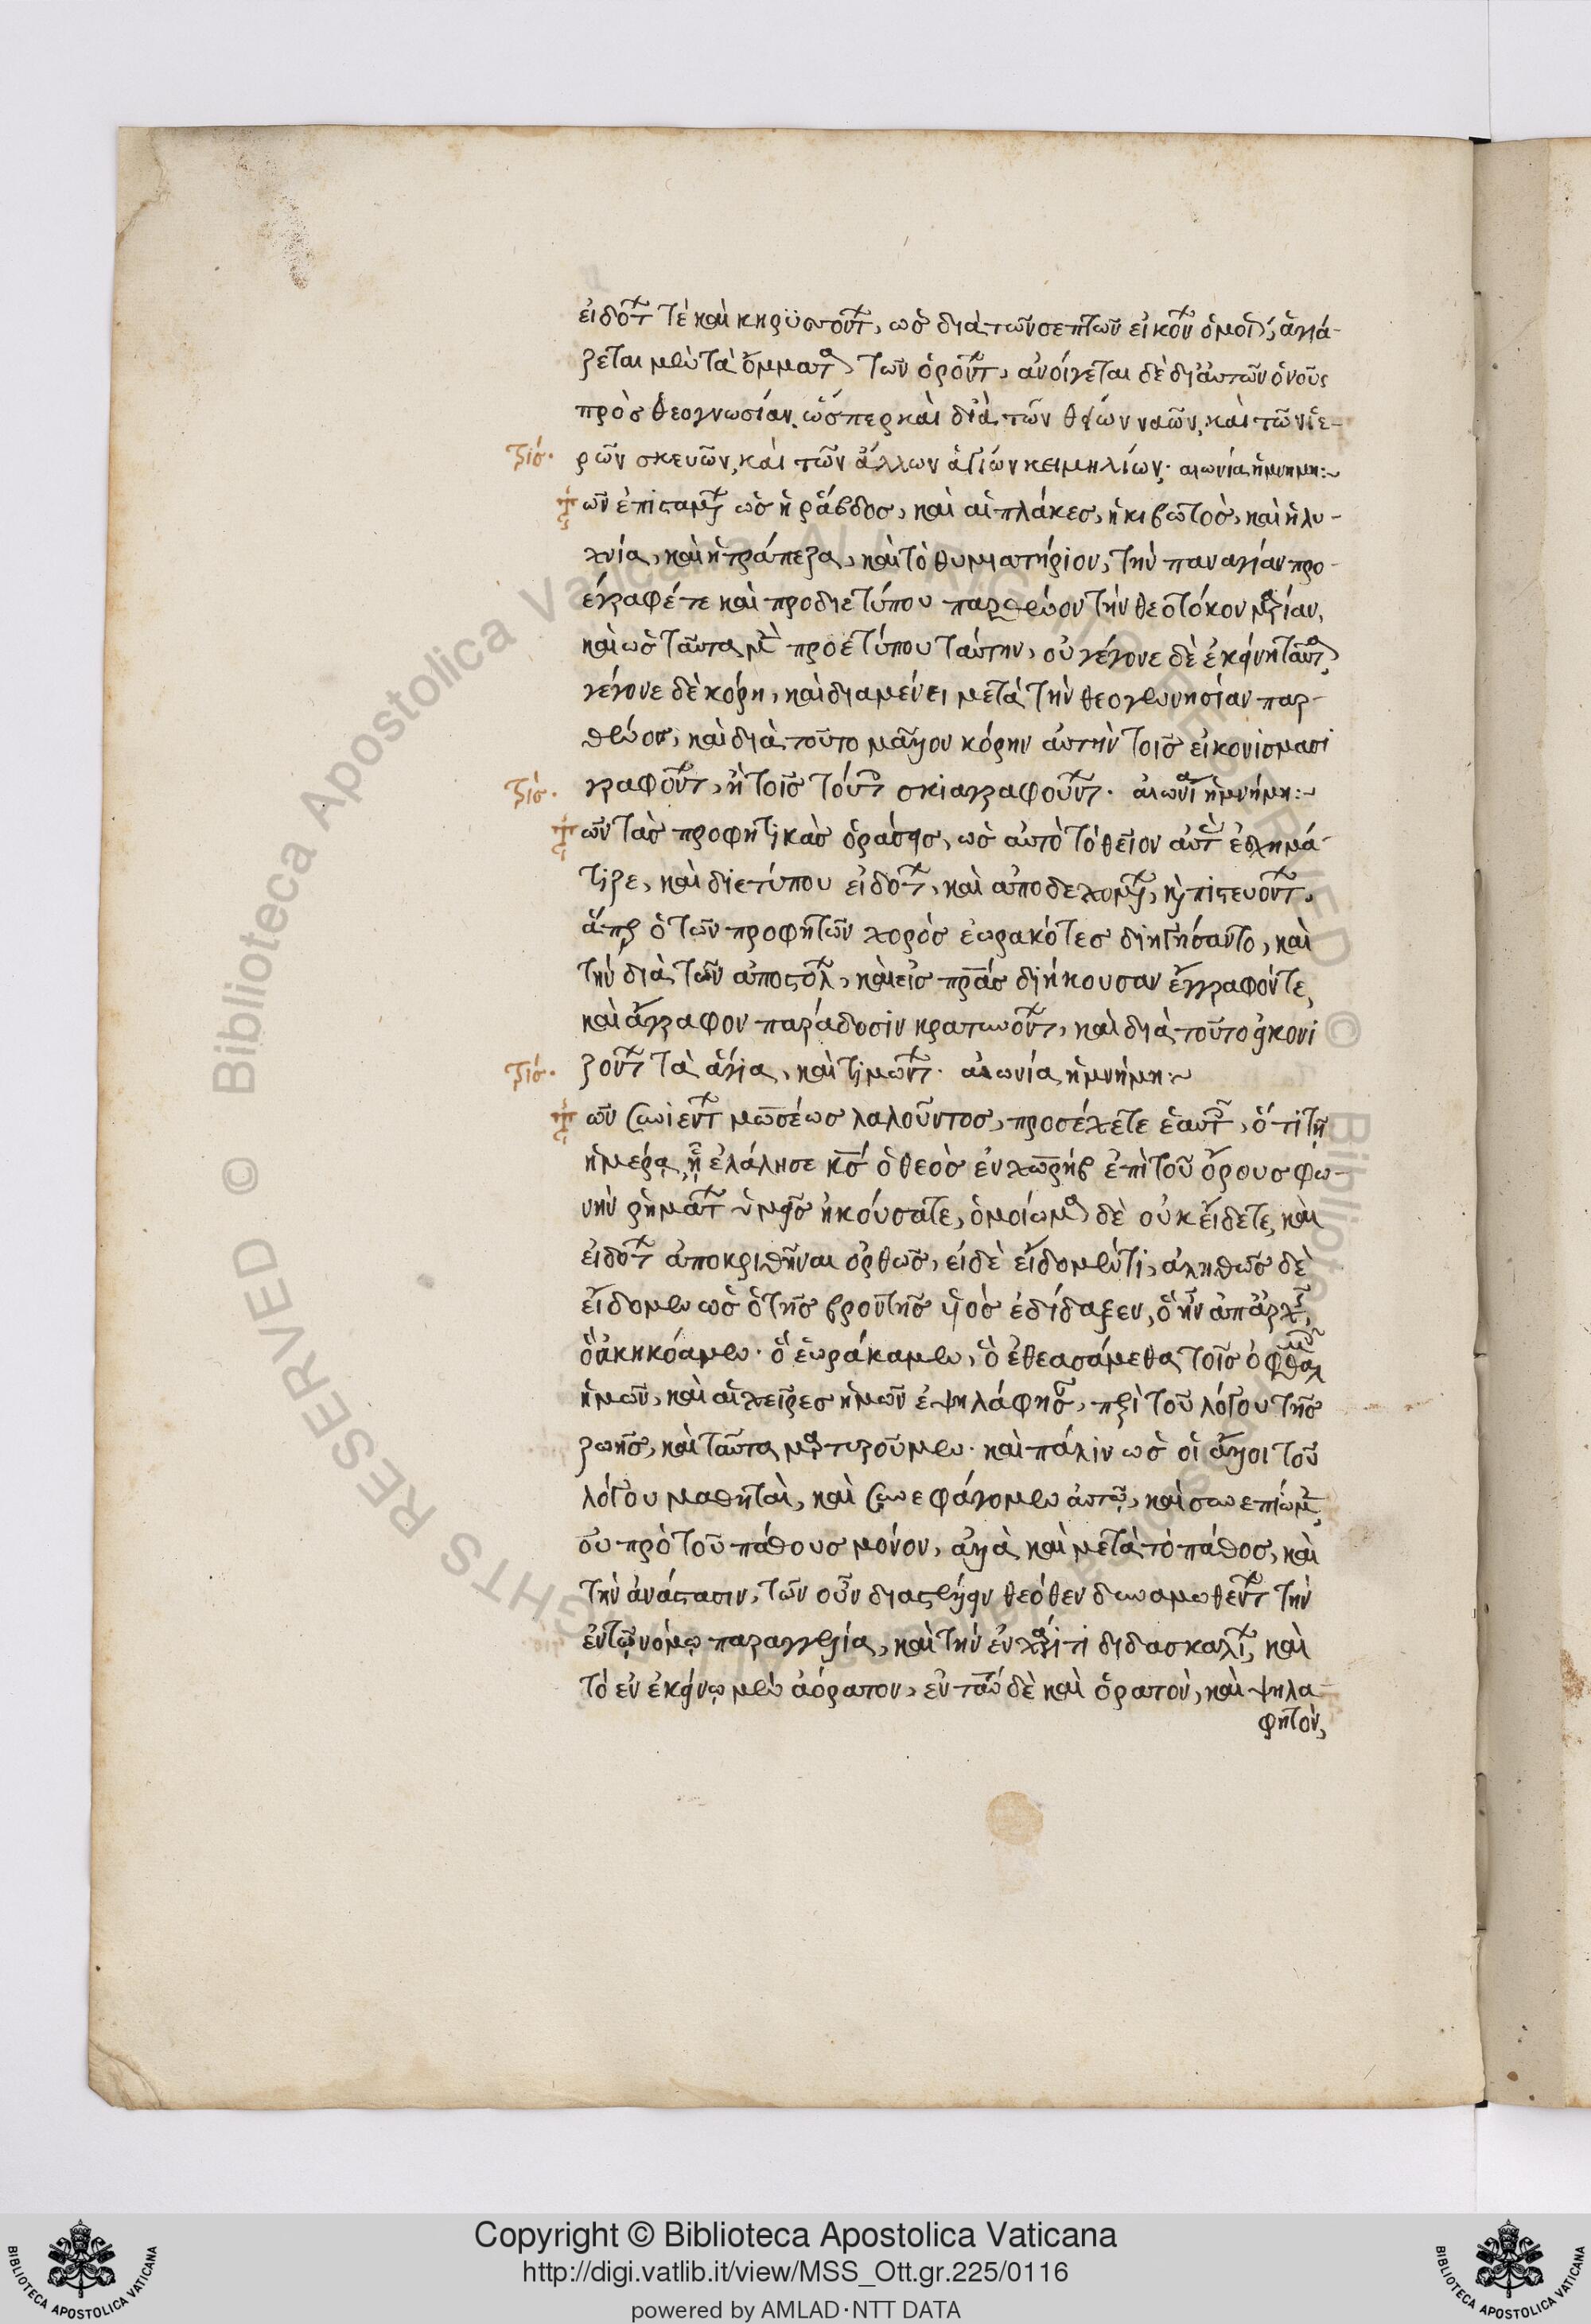 εἰδότ τὲ καὶ κηρϋσσοντ, ὡς διὰ τῶν σεπτῶν εἰκόν ὁμοί, ἁγιά-
ζεται μὲν τὰ ὄμματ τῶν ὁρόντ, ἀνοίγεται δὲ δι' αὐτῶν ὁ νοῦς
πρὸς θεογνωσίαν, ὥσπερ καὶ διὰ τῶν θείων ναῶν, καὶ τῶν ἱε-
τρίς. ρῶν σκευῶν, καὶ τῶν ἄλλων ἁγίων κειμηλίων, αἰωνία ἡ μνήμη:~
τῶν ἐπισταμ ὡς ἡ ῥάβδος, καὶ αἱ πλάκες, ἡ κιβωτὸς, καὶ ἡ λυ-
χνία, καὶ ἡ τράπεζα, καὶ τὸ θυμιατήριον, τὴν παναγίαν προ-
έγραφέ τε καὶ προδιετύπου παρθένον τὴν θεοτόκον μαρίαν,
καὶ ὡς ταῦτα μ προετύπου ταύτην, οὐ γέγονε δὲ ἐκείνη ταῦτ,
γέγονε δὲ κόρη, καὶ διαμένει μετὰ τὴν θεογεννησίαν παρ-
θένος, καὶ διὰ τοῦτο μᾶλλον κόρην αὐτὴν τοῖς εἰκονίσμασι
τρίς. γραφόντ, ἢ τοῖς τύπ σκιαγραφούντ. αἰωνί ἡ μνήμη:~
τῶν τὰς προφητικὰς ὁράσεις, ὡς αὐτὸ τὸ θεῖον αὐτ ἐσχημά-
τιζε, καὶ διετύπου εἰδότ, καὶ ἀποδεχομ, κ πιστευόντ,
ἅπερ ὁ τῶν προφητῶν χορὸς ἑωρακότες διηγήσαντο, καὶ
τὴν διὰ τῶν ἀποστόλ, καὶ εἰς πρας διήκουσαν ἔγγραφόν τε,
καὶ ἄγραφον παράδοσιν κρατυνόντ, καὶ διὰ τοῦτο εἰκονι
τρίς. ζόντ τὰ ἅγια, καὶ τιμώντ. αἰωνία ἡ μνήμη:~
τῶν συνιέντ μωσέως λαλοῦντος, προσέχετε ἑαυτ, ὅτι τῇ
ἡμέρᾳ, ᾗ ἐλάλησε κς ὁ θεὸς ἐν χωρὴβ ἐπὶ τοῦ ὄρους φω-
νὴν ῥημάτ ὑμεῖς ἠκούσατε, ὁμοίωμ δὲ οὐκ εἴδετε, καὶ
εἰδότ ἀποκριθῆναι ὀρθῶς, εἰ δὲ εἴδομέν τι, ἀληθῶς δὲ
εἴδομεν ὡς ὁ τῆς βροντῆς ὑὸς ἐδίδαξεν, ὃ ἦν ἀπ' ἀρχ,
ὃ ἀκηκόαμεν. ὃ ἑωράκαμεν, ὃ ἐθεασάμεθα τοῖς ὀφθαλ
ἡμῶν, καὶ αἱ χεῖρες ἡμῶν ἐψηλάφησ, περὶ τοῦ λόγου τῆς
ζωῆς, καὶ ταῦτα μαρτυροῦμεν. καὶ πάλιν ὡς οἱ ἄλλοι τοῦ
λόγου μαθηταὶ, καὶ συνεφάγομεν αὐτῷ, καὶ συνεπίομ,
οὐ πρὸ τοῦ πάθους μόνον, ἀλλὰ καὶ μετὰ τὸ πάθος, καὶ
τὴν ἀνάστασιν, τῶν οὖν διαστέλλειν θεόθεν δυναμωθέντ τὴν
ἐν τῷ νόμῳ παραγγελία, καὶ τὴν ἐν χάριτι διδασκαλί, καὶ
τὸ ἐν ἐκείνῳ μὲν ἀόρατον, ἐν ταυ δὲ καὶ ὁρατὸν, καὶ ψηλα-
φητὸν,
Copyright © Biblioteca Apostolica Vaticana
http://digi.vatlib.it/view/MSS_Ott.gr.225/0116
powered by AMLAD·NTT DATA